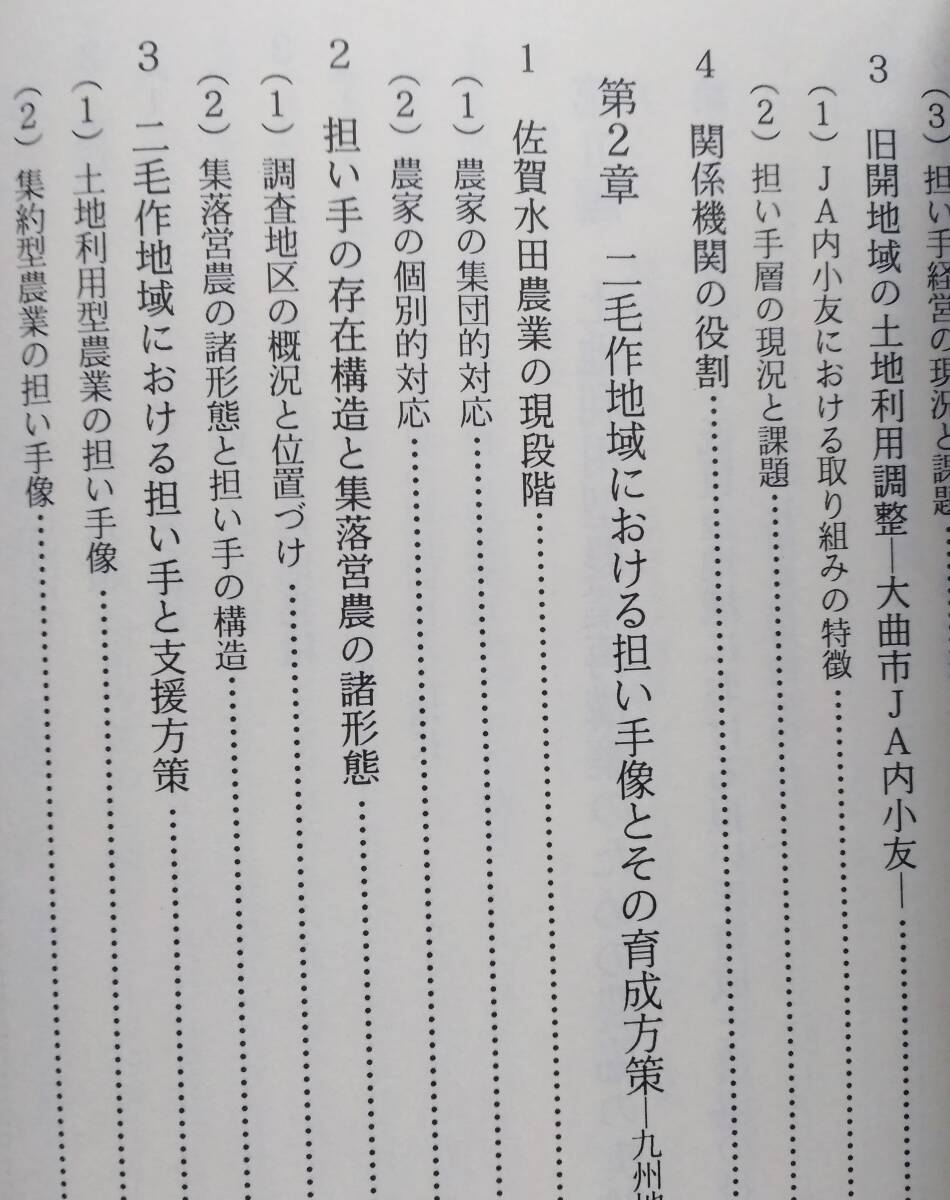 (3) 担い手経営の現況と課題………
3 旧開地域の土地利用調整―大曲市JA内小友―………
(1) JA内小友における取り組みの特徴………
(2) 担い手層の現況と課題………
4 関係機関の役割………
第2章 二毛作地域における担い手像とその育成方策―九州地
1 佐賀水田農業の現段階………
(1) 農家の集団的対応………
(2) 農家の個別的対応………
2 担い手の存在構造と集落営農の諸形態………
(1) 調査地区の概況と位置づけ………
(2) 集落営農の諸形態と担い手の構造………
3 二毛作地域における担い手と支援方策………
(1) 土地利用型農業の担い手像………
(2) 集約型農業の担い手像………